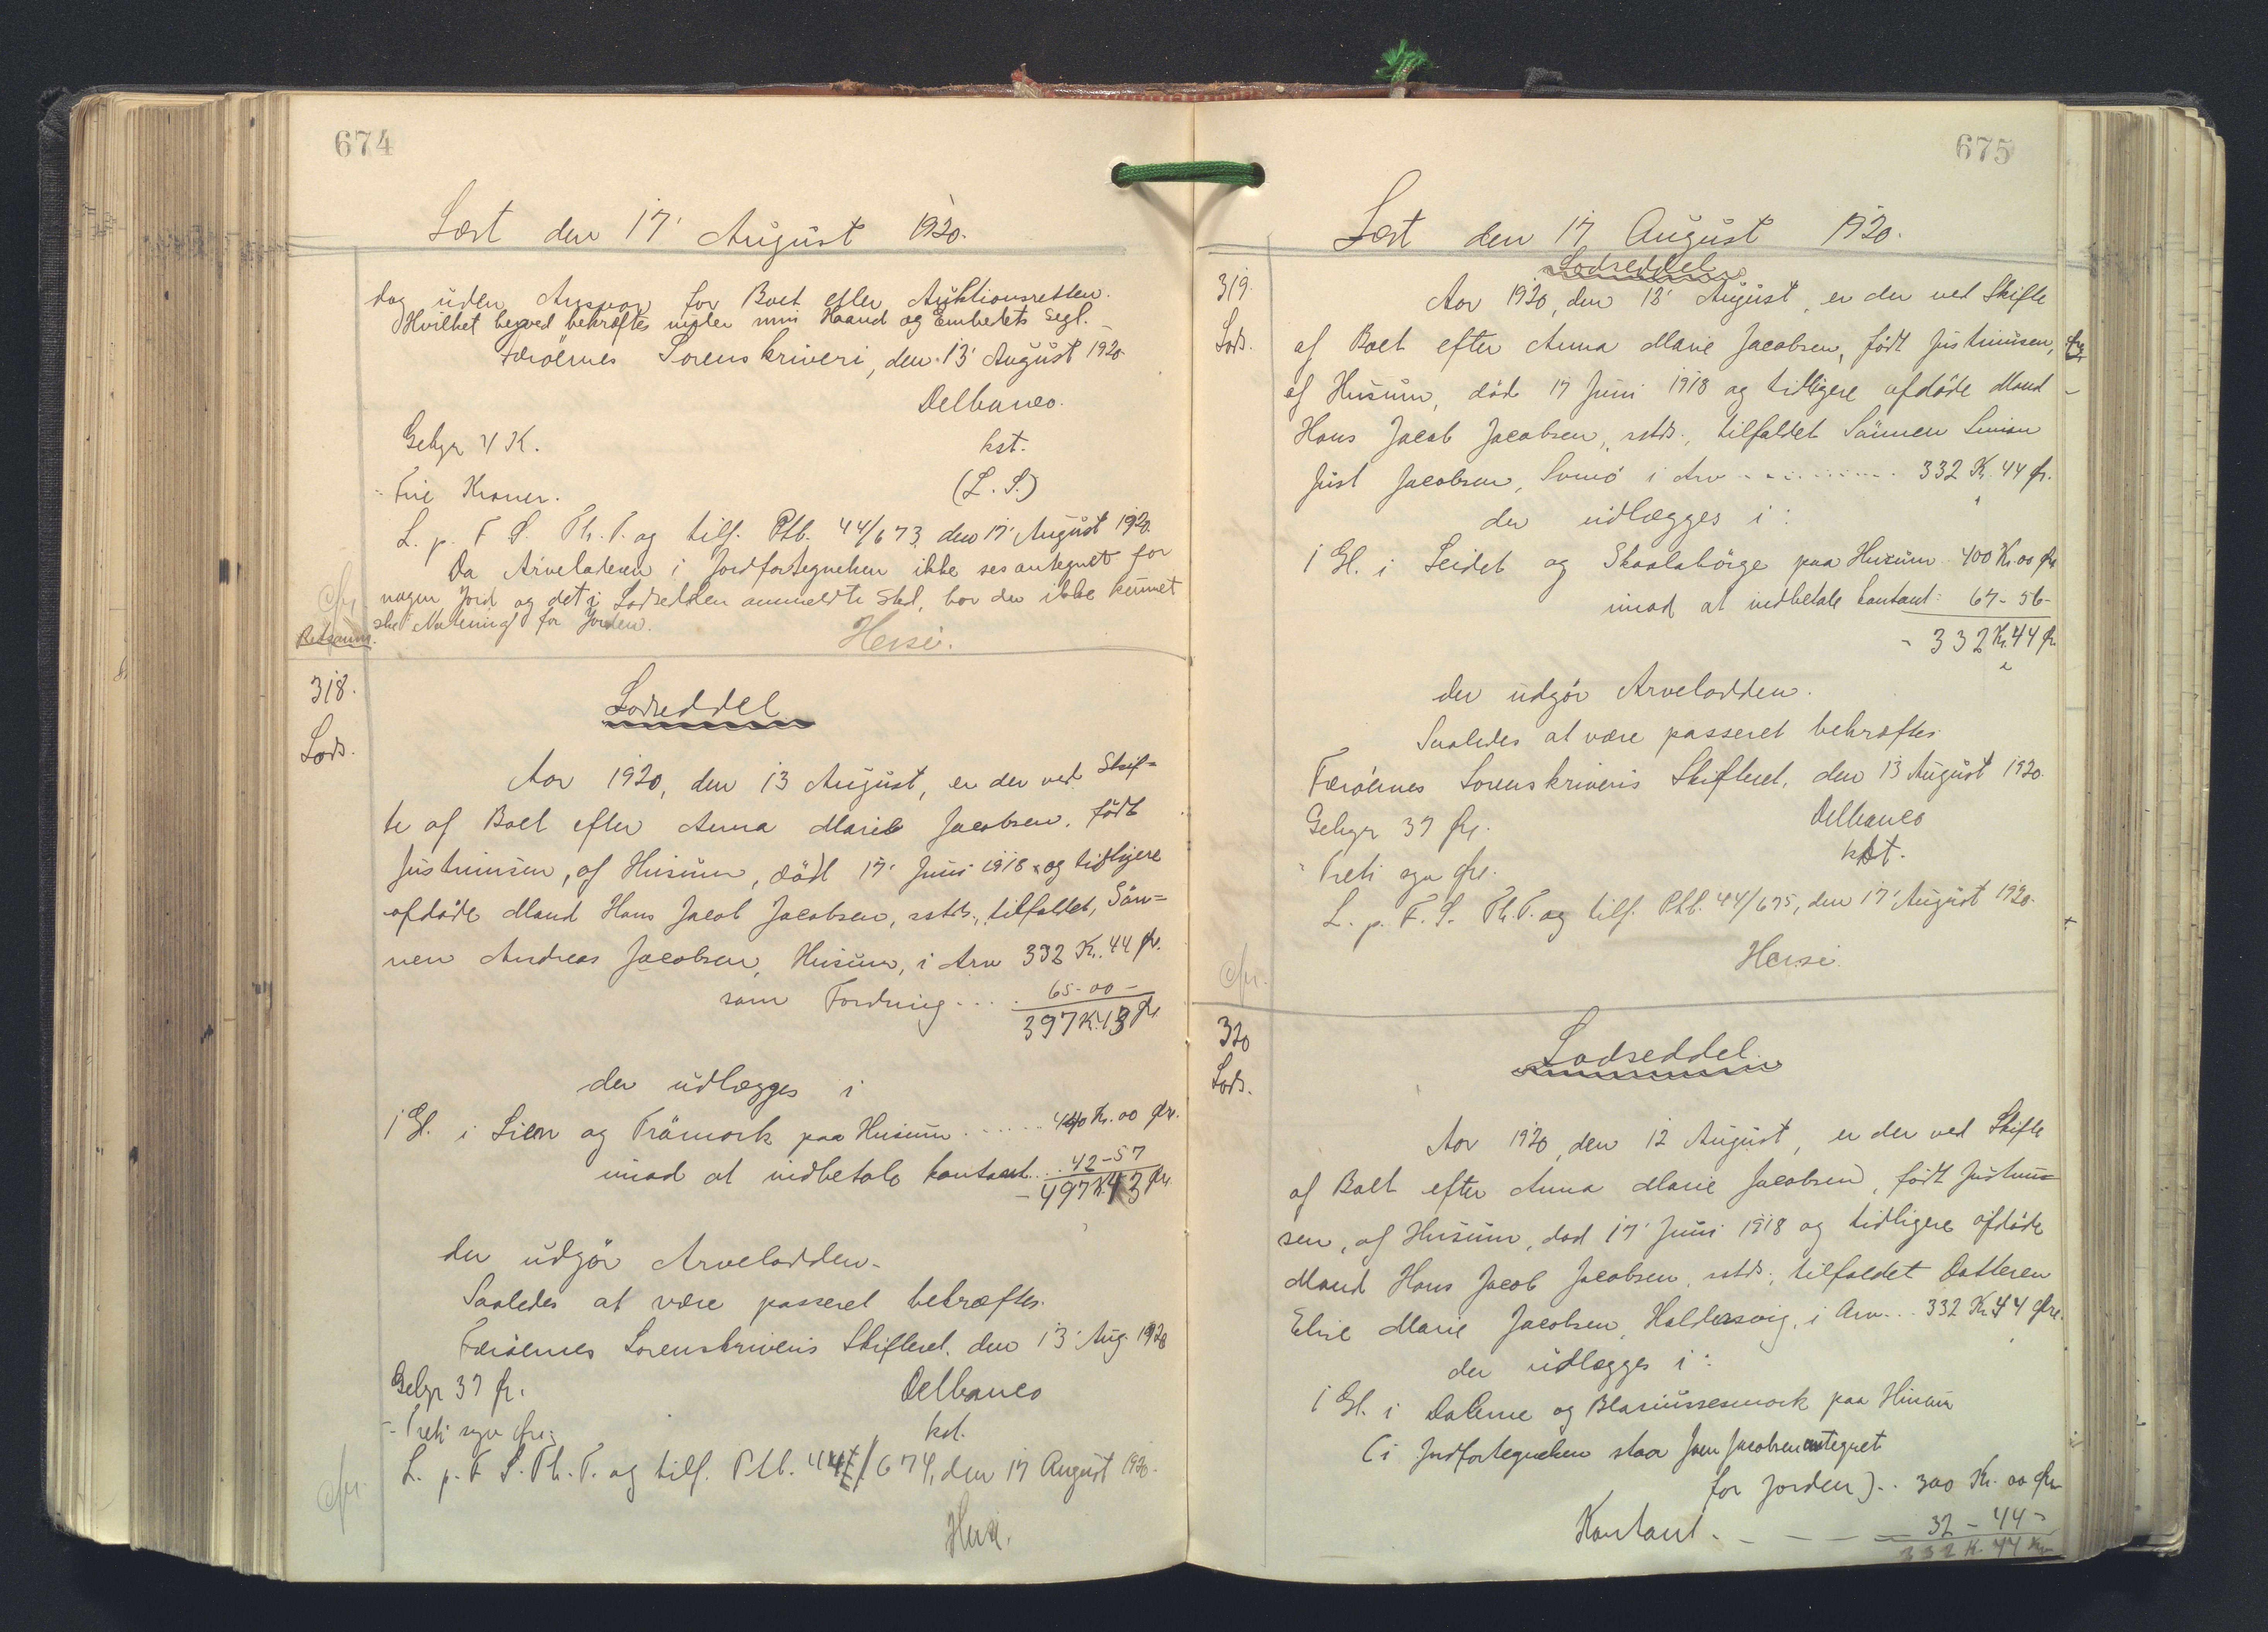 674
Læst den 17' August 1920.
dag uden Ansvar for Boet eller Auktionsretten.
Hvilket herved bekræftes under min Haand og Embedets Segl.
Færöernes Sorenskriveri, den 13' August 1920.
Delbanco.
Gebyr 4 K. kst.
- Fire Kroner. (L. S.)
L. p. F. S. Th. T. og tilf. Ptb. 44/673, den 17' August 1920.
Da Arveladeren i Jordfortegnelsen ikke ses antegnet for
nogen Jord og det i Lodsedlen anmeldte Sted, har der ikke kunnet
ske Notering for Jorden.
cfr.
Retsanm.
Hersi.
318.
Lods.
Lodseddel
Aar 1920, den 13 August, er der ved Skif=
te af Boet efter Anna Marie Jacobsen, födt
Justinussen, af Husum, död 17' Juni 1918 og tidligere
afdöde Mand Hans Jacob Jacobsen, sstds., tilfaldet, Sön=
nen Andreas Jacobsen, Husum, i Arv 332 K. 44 Ør.
som Fordring .... 65-00-
397 K. 43 Ør.
der udlægges i
1 Gl. i Lien og Trämork paa Husum ...... 440 Kr. 00 Ør.
imod at indbetale kontant ... 42-57
- 497 K. 43 Ør.
der udgör Arvelodden.
Saaledes at være passeret bekræftes.
Færöernes Sorenskriveris Skifteret, den 13' Aug. 1920
Gebyr 37 Ør. Delbanco
- Treti syv Øre. kst.
L. p. F. S. Th. T. og tilf. Ptb. 44/674, den 17 August 1920.
cfr.
Hersi.
675
Læst den 17 August 1920.
Lodseddel
319.
Lods.
Aar 1920, den 13' August, er der ved Skifte
af Boet efter Anna Marie Jacobsen, födt Justinussen,
af Husum, död 17 Juni 1918 og tidligere afdöde Mand
Hans Jacob Jacobsen, sstds., tilfaldet Sönnen Simon
Just Jacobsen, Svinö i Arv .......... 332 K. 44 Ør.
der udlægges i:
1 Gl. i Leidet og Skaalabörge paa Husum 400 Kr. 00 Ør.
imod at indbetale kontant: 67-56-
- 332 Kr. 44 Ør
der udgör Arvelodden.
Saaledes at være passeret bekræftes
Færöernes Sorenskriveris Skifteret, den 13 August 1920.
Gebyr 37 Ør. Delbanco
- Treti syv Øre. kst.
L. p. F. S. Th. T. og tilf. Ptb. 44/675, den 17' August 1920.
cfr.
Hersi.
320
Lods.
Lodseddel
Aar 1920, den 12 August, er der ved Skifte
af Boet efter Anna Marie Jacobsen, födt Justinus=
sen, af Husum, död 17' Juni 1918 og tidligere afdöde
Mand Hans Jacob Jacobsen, sstds., tilfaldet Datteren
Elsie Marie Jacobsen, Haldersvig, i Arv... 332 Kr 44 Øre.
der udlægges i:
1 Gl. i Dalerne og Blasiussesmork paa Husum
(i Jordfortegnelsen staar Joen Jacobsen antegnet
for Jorden).. 300 Kr. 00 Ør
Kontant. - - - - 32 - 44 -
332 K. 44 Ør